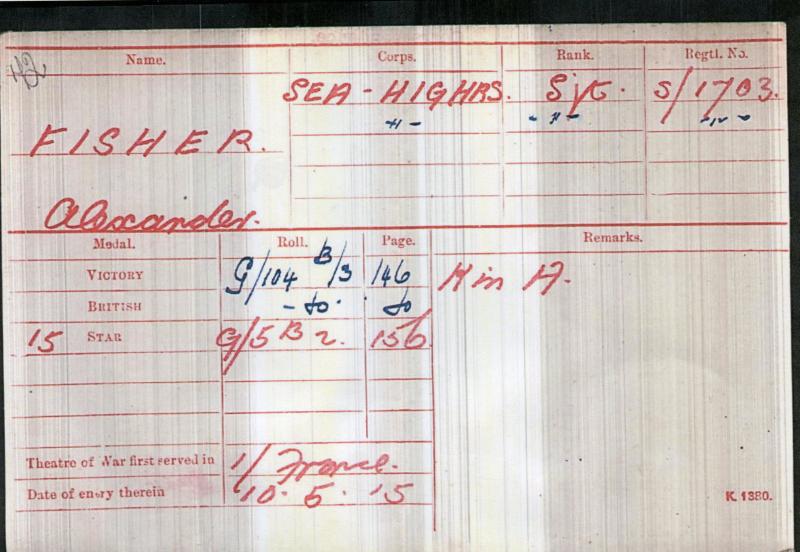 Name. Corps. Rank. Regtl. No.
SEA - HIGHRS. Sjt. S/1703.
-"- -"- -"-
FISHER.
Alexander.
Medal. Roll. Page. Remarks.
VICTORY G/104 B/3 146 K in A.
BRITISH - do - do
15 STAR G/5 B 2. 156.
Theatre of War first served in 1/ France.
Date of entry therein 10.5.15
K. 1380.